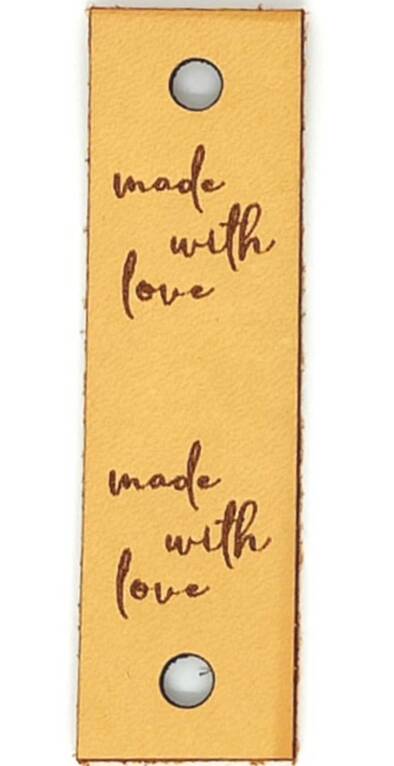 made
with
love
made
with
love